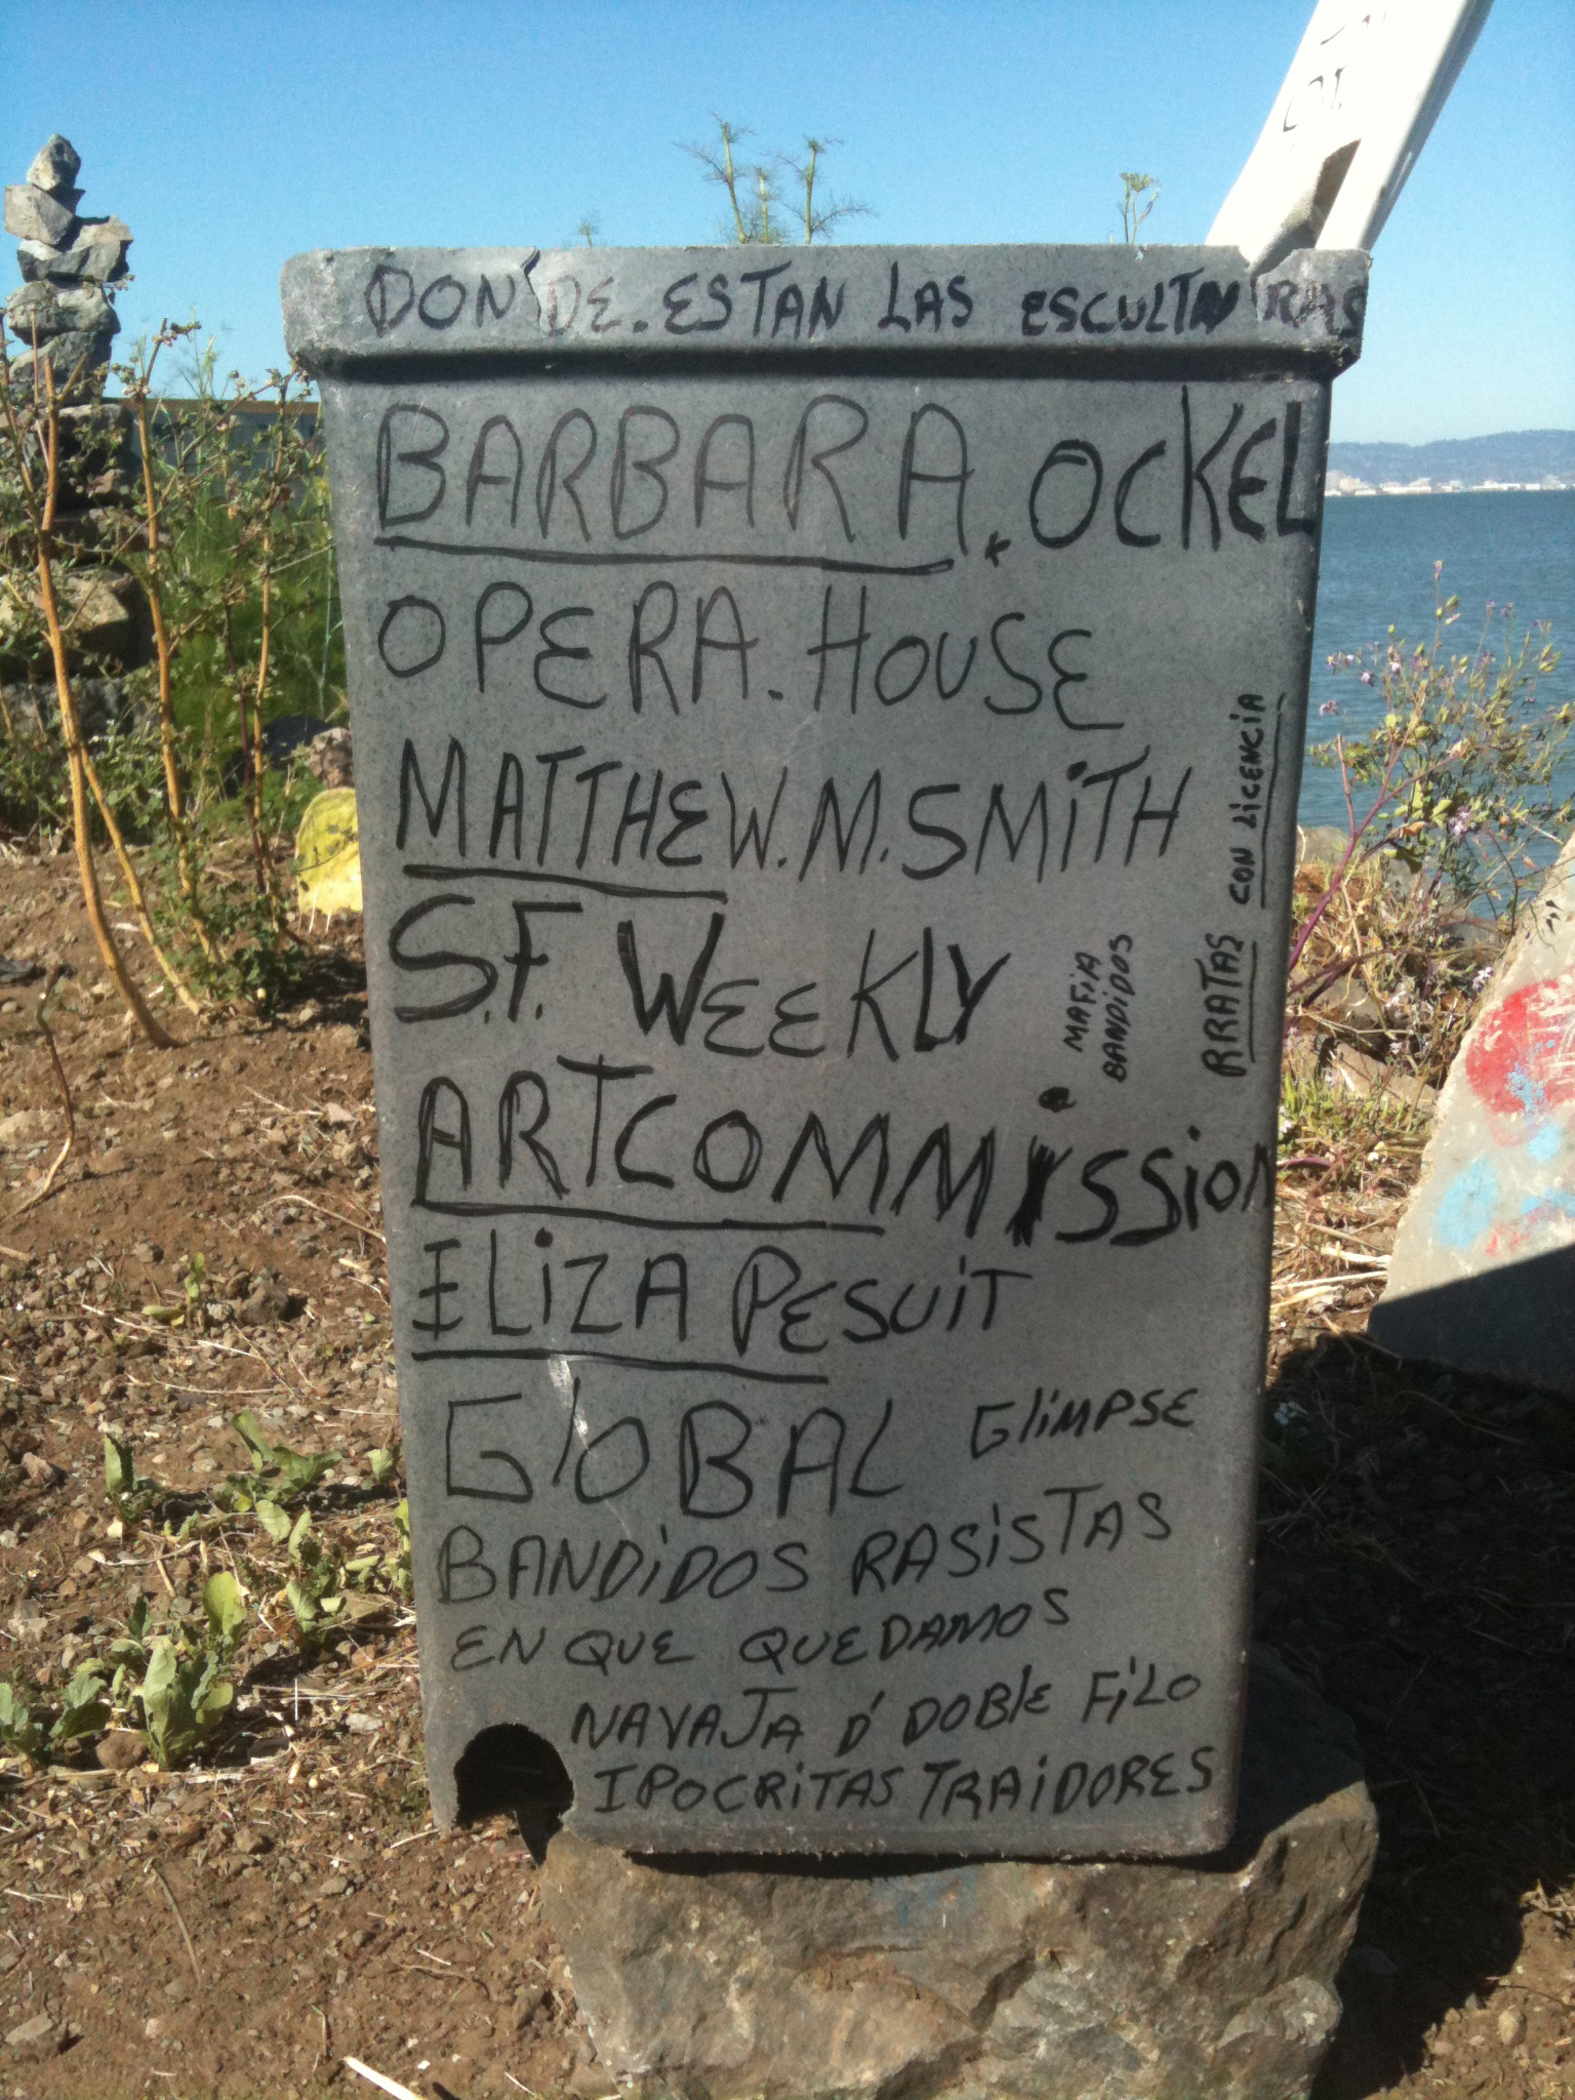 DONDE. ESTAN LAS ESCULTURAS
BARBARA. OCKEL
OPERA. HOUSE
MATTHEW. M. SMiTH
S.F. WEEKLY
MAFiA
BANDiDOS
RRATAS CON LiCENCiA
ARTCOMMiSSiON
ELiZA PESUiT
GlOBAL GliMPSE
BANDiDOS RASiSTAS
EN QUE QUEDAMOS
NAVAJA D' DOBlE FiLO
IPOCRiTAS TRAiDORES